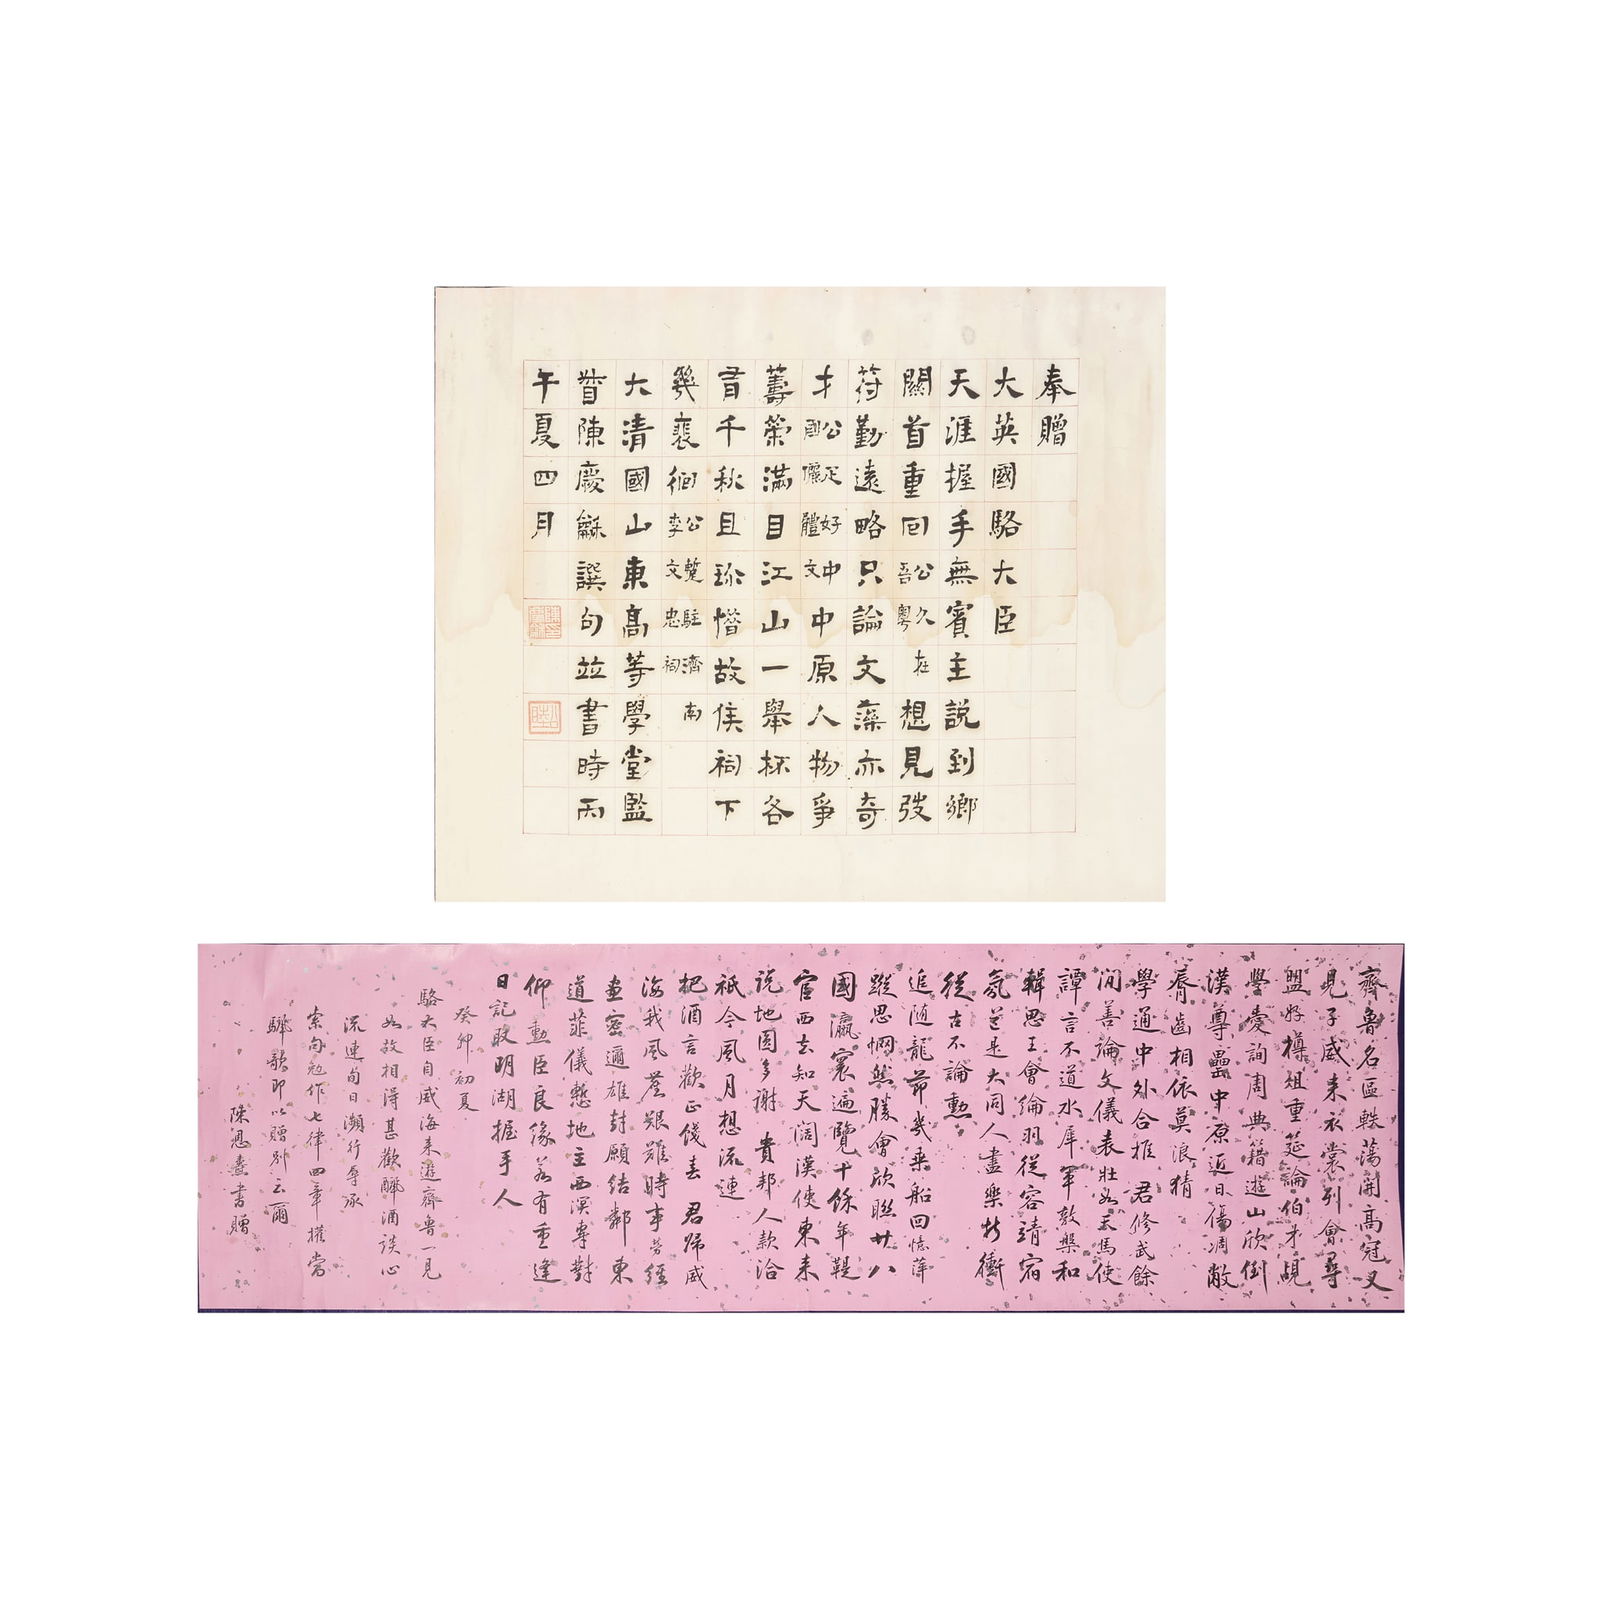 奉贈
大英國駱大臣
天涯握手無賓主說到鄉
關首重回公久在吾粵想見弢
符勤遠略只論文藻亦奇
才公足好中國儷體文中原人物爭
籌策滿目江山一舉杯各
有千秋且珍惜故侯祠下
幾裵徊公蹔駐濟南李文忠祠
大清國山東高等學堂監
督陳慶龢譔句並書時丙
午夏四月
齊魯名區軼蕩開高冠又
見子威来衣裳列會尋
盟好樽俎重筵論伯才覘
學爰詢周典籍遊山欣倒
漢尊罍中原近日傷凋敝
脣齒相依莫浪猜
學通中外合推君修武餘
閒善論文儀表壯如天馬使
譚言不道水犀軍敦槃和
輯思王會綸羽從容靖宿
氛芑是大同人盡樂折衝
從古不論勳
追随龍節幾乘船回憶萍
蹤思惘然勝會欣聯廿八
國瀛寰遍覽十餘年鞮
官西去知天闊漢使東来
説地圓多謝貴邦人款洽
祇今風月想流連
把酒言歡正餞春君歸威
海我風塵艱難時事勞經
畫密邇雄封願結鄰東
道菲儀慙地主西溟専對
仰勳臣良緣若有重逢
日記取明湖握手人
癸卯初夏
駱大臣自威海来遊齊魯一見
如故相得甚歡酾酒談心
流連旬日瀕行辱承
索句勉作七律四章權當
驪歌即以贈别云爾
陳恩燾書贈